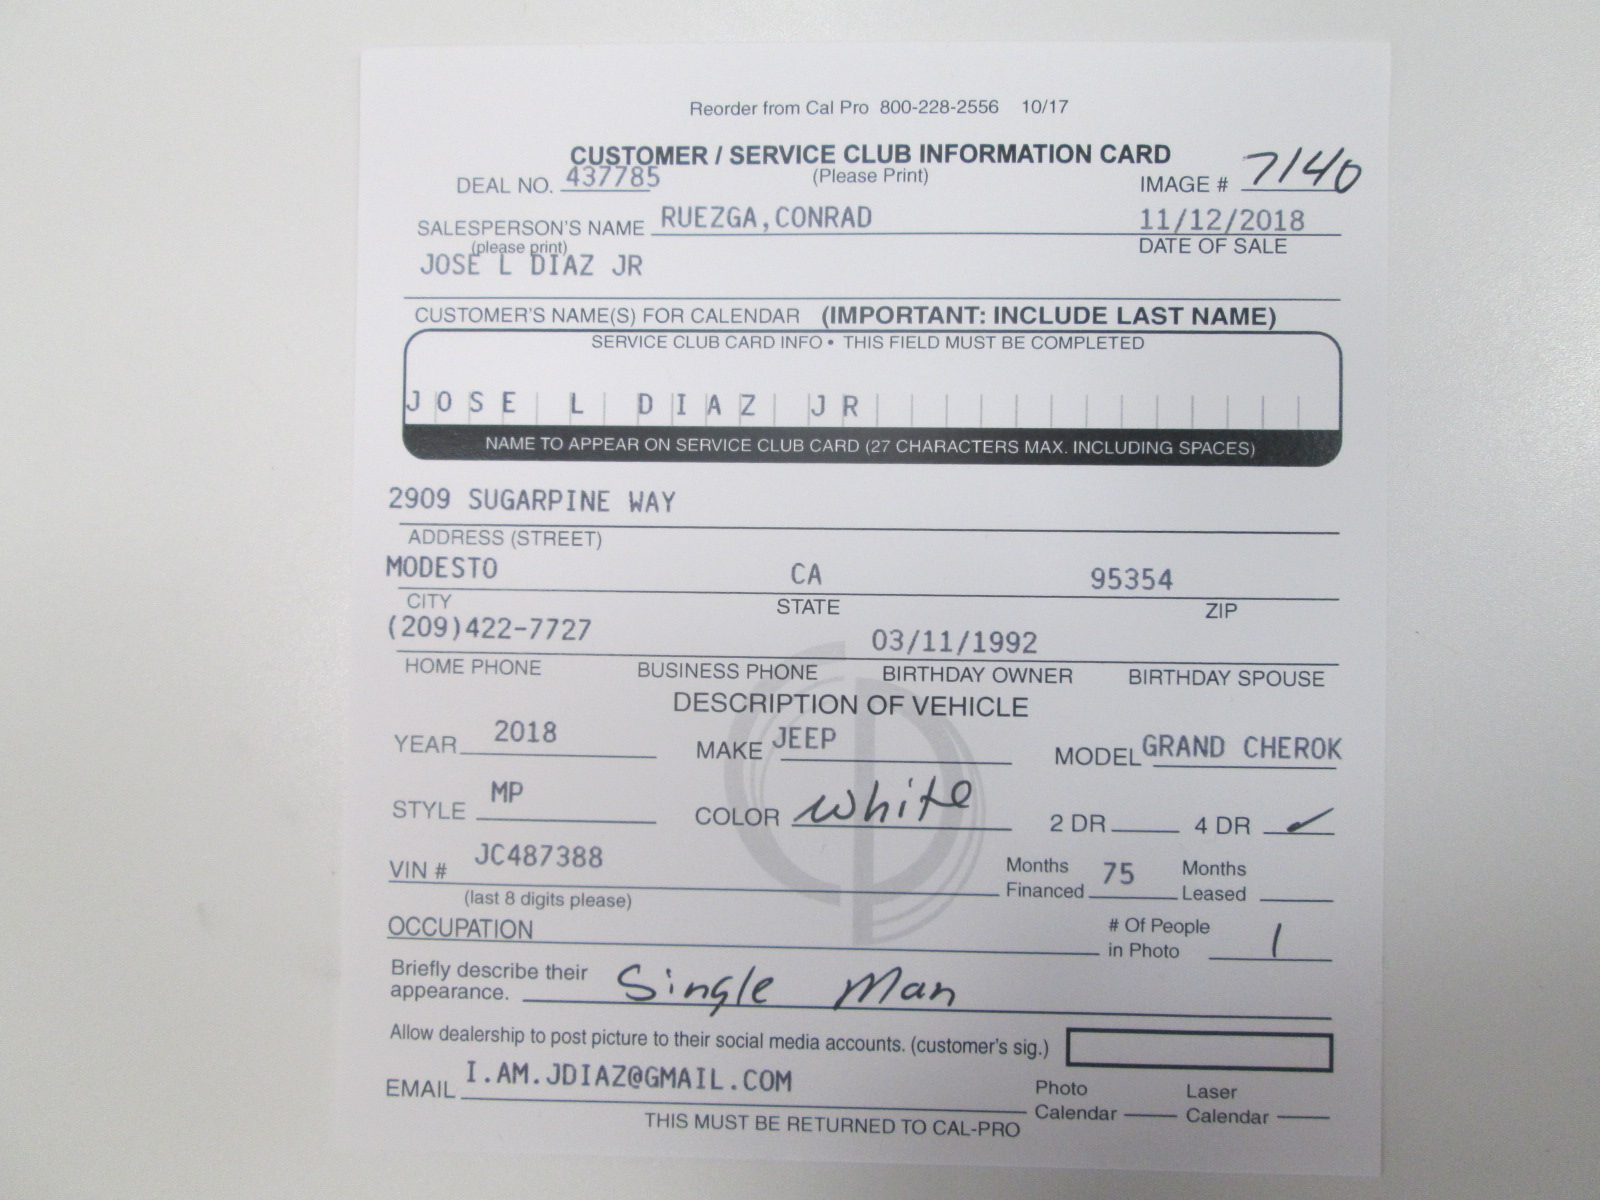 Reorder from Cal Pro 800-228-2556 10/17
CUSTOMER / SERVICE CLUB INFORMATION CARD
DEAL NO. 437785 (Please Print) IMAGE # 7140
SALESPERSON'S NAME RUEZGA,CONRAD 11/12/2018
(please print) DATE OF SALE
JOSE L DIAZ JR
CUSTOMER'S NAME(S) FOR CALENDAR (IMPORTANT: INCLUDE LAST NAME)
SERVICE CLUB CARD INFO • THIS FIELD MUST BE COMPLETED
JOSE L DIAZ JR
NAME TO APPEAR ON SERVICE CLUB CARD (27 CHARACTERS MAX. INCLUDING SPACES)
2909 SUGARPINE WAY
ADDRESS (STREET)
MODESTO CA 95354
CITY STATE ZIP
(209)422-7727 03/11/1992
HOME PHONE BUSINESS PHONE BIRTHDAY OWNER BIRTHDAY SPOUSE
DESCRIPTION OF VEHICLE
YEAR 2018 MAKE JEEP MODEL GRAND CHEROK
STYLE MP COLOR White 2 DR 4 DR ✓
VIN # JC487388 Months Financed 75 Months Leased
(last 8 digits please)
OCCUPATION # Of People in Photo 1
Briefly describe their appearance. Single Man
Allow dealership to post picture to their social media accounts. (customer's sig.)
EMAIL I.AM.JDIAZ@GMAIL.COM Photo Calendar Laser Calendar
THIS MUST BE RETURNED TO CAL-PRO